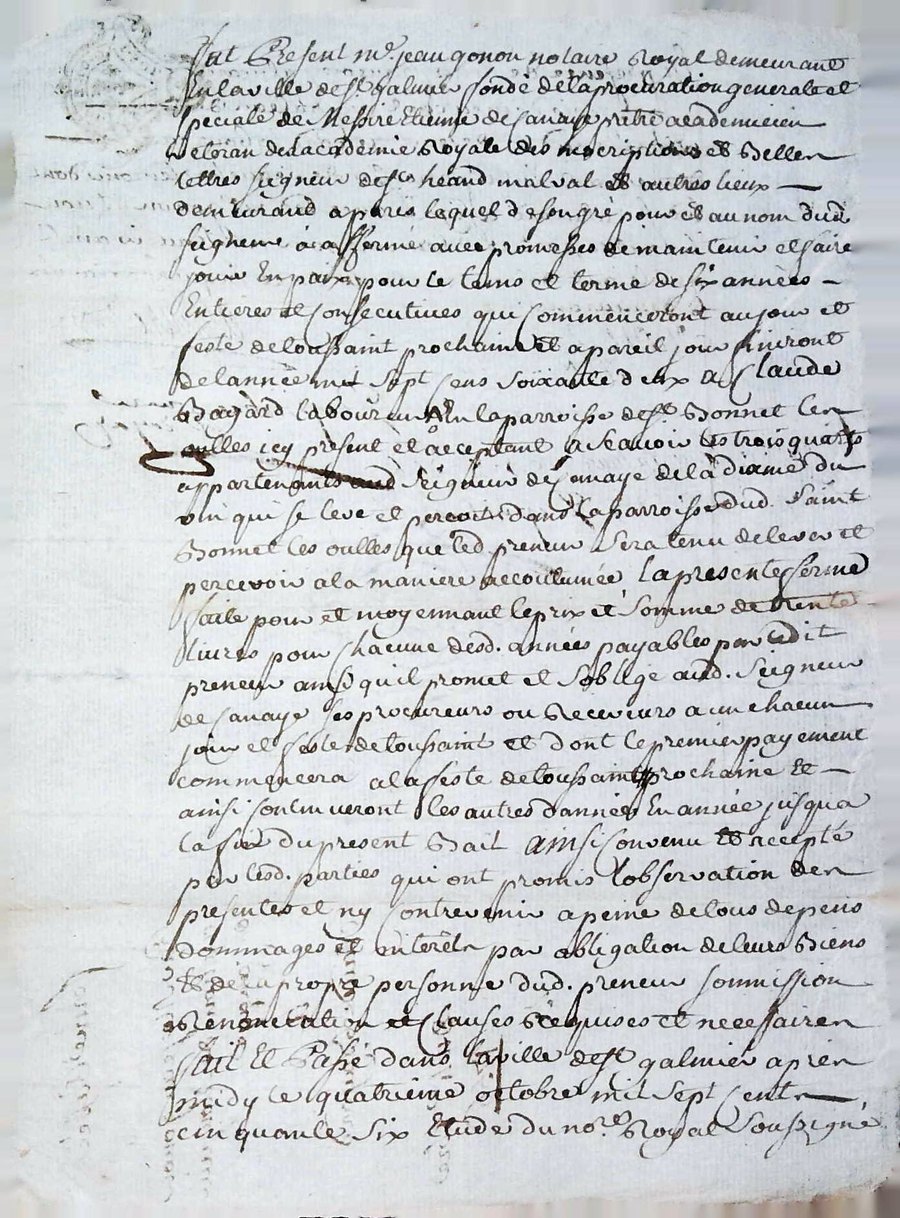 fut Present me. jean gonon notaire Royal demeurant
En la ville de st. galmier fondé de la procuration generale et
speciale de Messire Etienne de Canaye prêtre academicien
veteran de lacadémie Royale des inscriptions et Bellen
lettres seigneur de st heand malval et autres lieux —
demeurand a paris lequel de son gré pour et au nom dud.
seigneur à affermé avec promesses de maintenir et faire
jouir En paix pour le tems et terme de six années —
Entieres et Consecutives qui Commenceront au jour et
feste de toussaint prochaine et a pareil jour finiront
de lannée mil sept cens soixante deux a Claude
Bagard laboureur En la parroisse de st. Bonnet len
oulles icy present et acceptant a scavoir les trois quarts
appartenants aud Seigneur de Canaye de la dixme du
vin qui se leve et percoit dans la parroisse dud. saint
Bonnet les oulles que led. preneur sera tenu de lever et
percevoir a la maniere accoutumée la presente ferme
faite pour et moyennant le prix et somme de trente
livres pour chacune desd. années payables par ledit
preneur ainsy quil promet et soblige aud. Seigneur
de Canaye ses procureurs ou Receveurs a un chacun
jour et feste de toussaint et dont le premier payement
commencera a la feste de toussaint prochaine et —
ainsi continueront les autres dannée En année jusqua
la fin du present Bail ainsi Convenu et accepté
par lesd. parties qui ont promis lobservation den
presentes et ny Contrevenir a peine de tous depens
dommages et interêtn par obligation de leurs Biens
et de la propre personne dud. preneur soumission
Renonciation et Clauses Requises et necessairen
fait Et Passé dans la ville de st galmier aprèn
midy le quatrieme octobre mil sept Centn
cinquante six Etude du nore. Royal soussigné